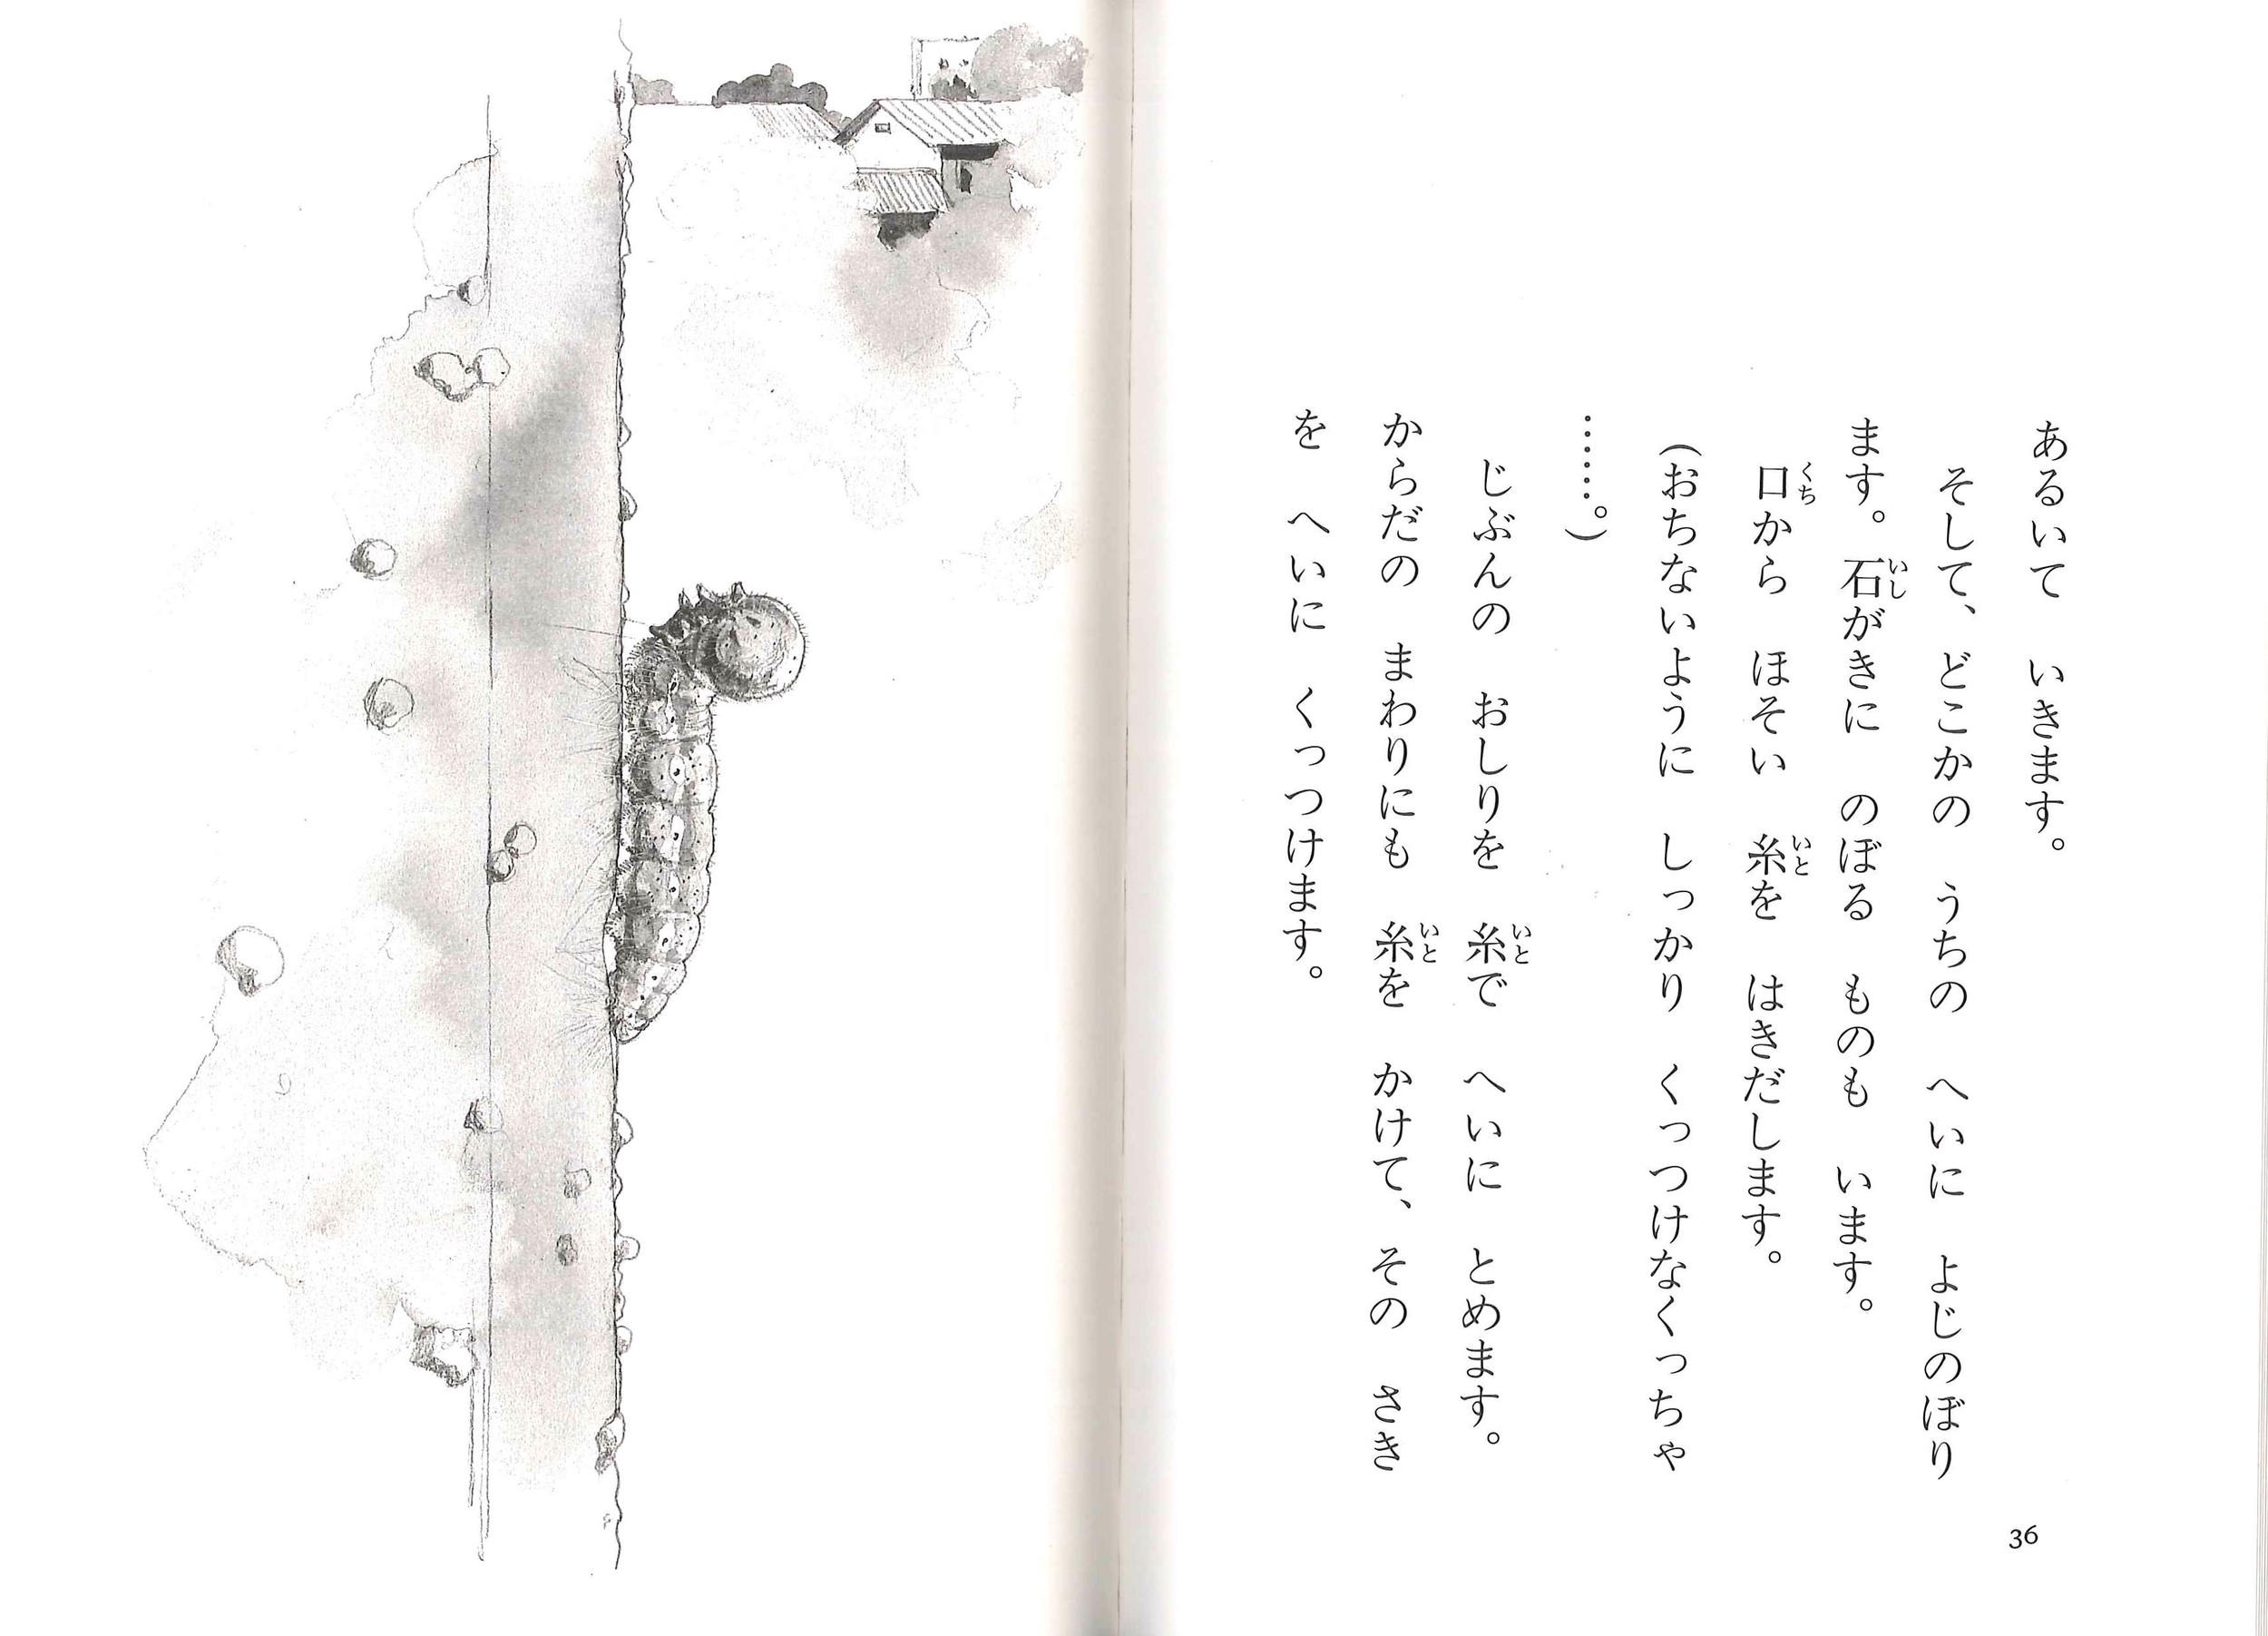 あるいて　いきます。
　そして、どこかの　うちの　へいに　よじのぼり
ます。石がきに　のぼる　ものも　います。
　口から　ほそい　糸を　はきだします。
（おちないように　しっかり　くっつけなくっちゃ
……。）
　じぶんの　おしりを　糸で　へいに　とめます。
からだの　まわりにも　糸を　かけて、その　さき
を　へいに　くっつけます。
36